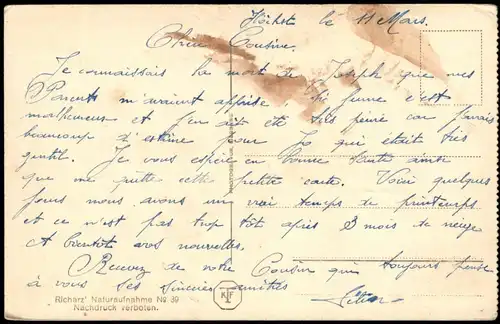 Höchst le 11 Mars.
Chère Cousine.
Je connaissais la mort de Joseph que mes
Parents m'avaient apprise, si jeune c'est
malheureux et j'en ait été très peiné car j'avais
beaucoup d'estime pour Jo qui était très
gentil. Je vous espère en bonne santé ainsi
que me quitte cette petite carte. Voici quelques
jours nous avons un vrai temps de printemps
et ce n'est pas trop tôt après 3 mois de neige
A bientôt avos nouvelles.
Recevez de votre Cousin qui toujours pense
à vous ses sincères amitiés
Richarz' Naturaufnahme № 39
Nachdruck verboten.
KTF